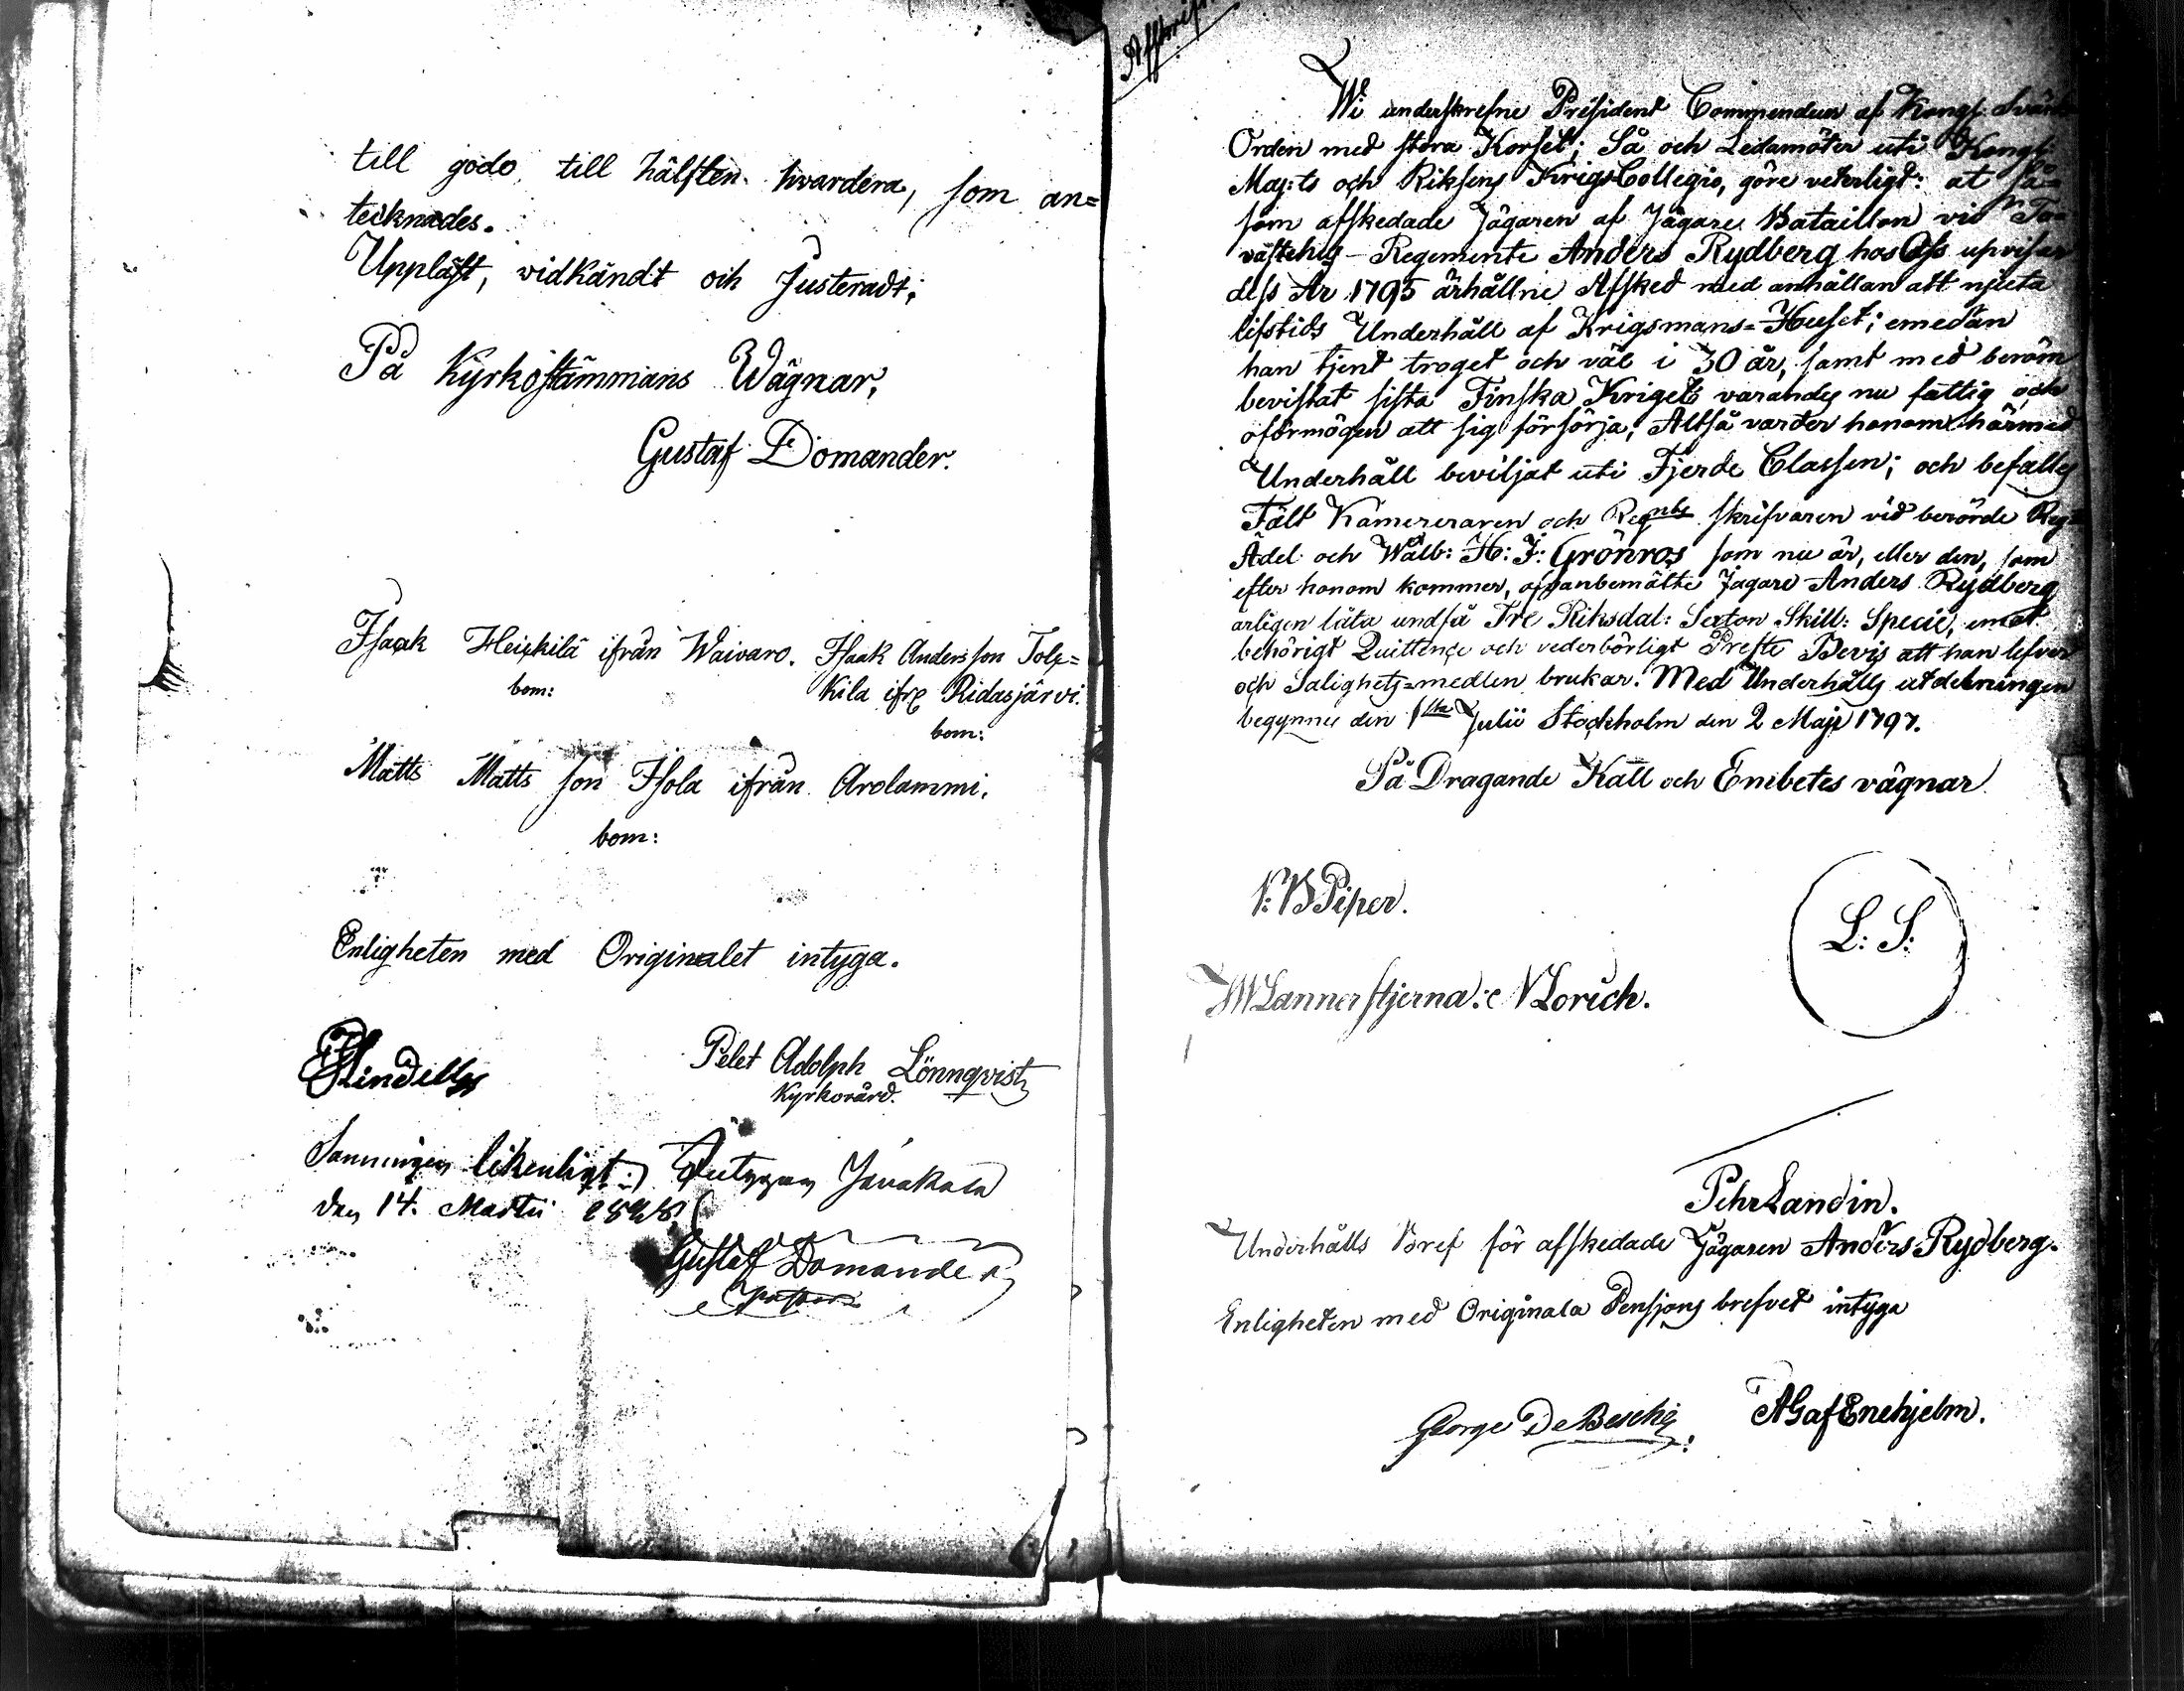 till godo till hälften hvardera, som an=
tecknades.
Uppläst, vidkändt och Justeradt;
På Kyrkostämmans Wägnar,
Gustaf Domander.
Isaak Heickilä ifrån Waivaro. Isaak Andersson Tolc=
bom: kila ifr Ridasjärvi.
bom:
Matts Mattsson Isola ifrån Arolammi.
bom:
Enligheten med Originalet intyga.
Adolph Lönnqvist
Kyrkovärd.
Sanningen likenligt
den 14. Martii
Gustaf Domander
Afskrift
Wi underskrefne President Commendeur af Kongl. Svärds
Orden med stora Korset; Så och Ledamöter uti Kongl:
Maj:ts och Riksens KrigsCollegio, göre veterligt: at så=
som afskedade Jägaren af Jägare Bataillon vid Ta=
vastehus Regemente Anders Rydberg hos Oss upvisar
dess År 1795 ärhållne Afsked med anhållan att njuta
lifstids Underhåll af Krigsmans=Huset; emedan
han tjent troget och väl i 30 år, samt med beröm
bevistat sista Finska Kriget varandes nu fattig och
oförmögen att sig försörja; Altså varder honom härmed
Underhåll beviljat uti Fjerde Classen; och befalles
Fält Kamereraren och Reg:nts skrifvaren vid berörde Reg:
Ädel och Wälb: H: J: Grönros som nu är, eller den, som
efter honom kommer, ofvanbemälte Jägare Anders Rydberg
årligen låta undfå Tre Riksdal: Sexton Skill: Specie, emot
behörigt Quittence och vederbörligt Preste Bevis att han lefver
och Salighets=medlen brukar. Med Underhålls utdelningen
begynnes den 1sta Julii Stockholm den 2 Maji 1797.
På Dragande Kall och Embetes vägnar
Piper.
L: S:
Lannerstjerna. N Lorich.
Pehr Landin.
Underhålls Bref för afskedade Jägaren Anders Rydberg.
Enligheten med Originala Pensjons brefvet intyga
George De Besche AG af Enehjelm.